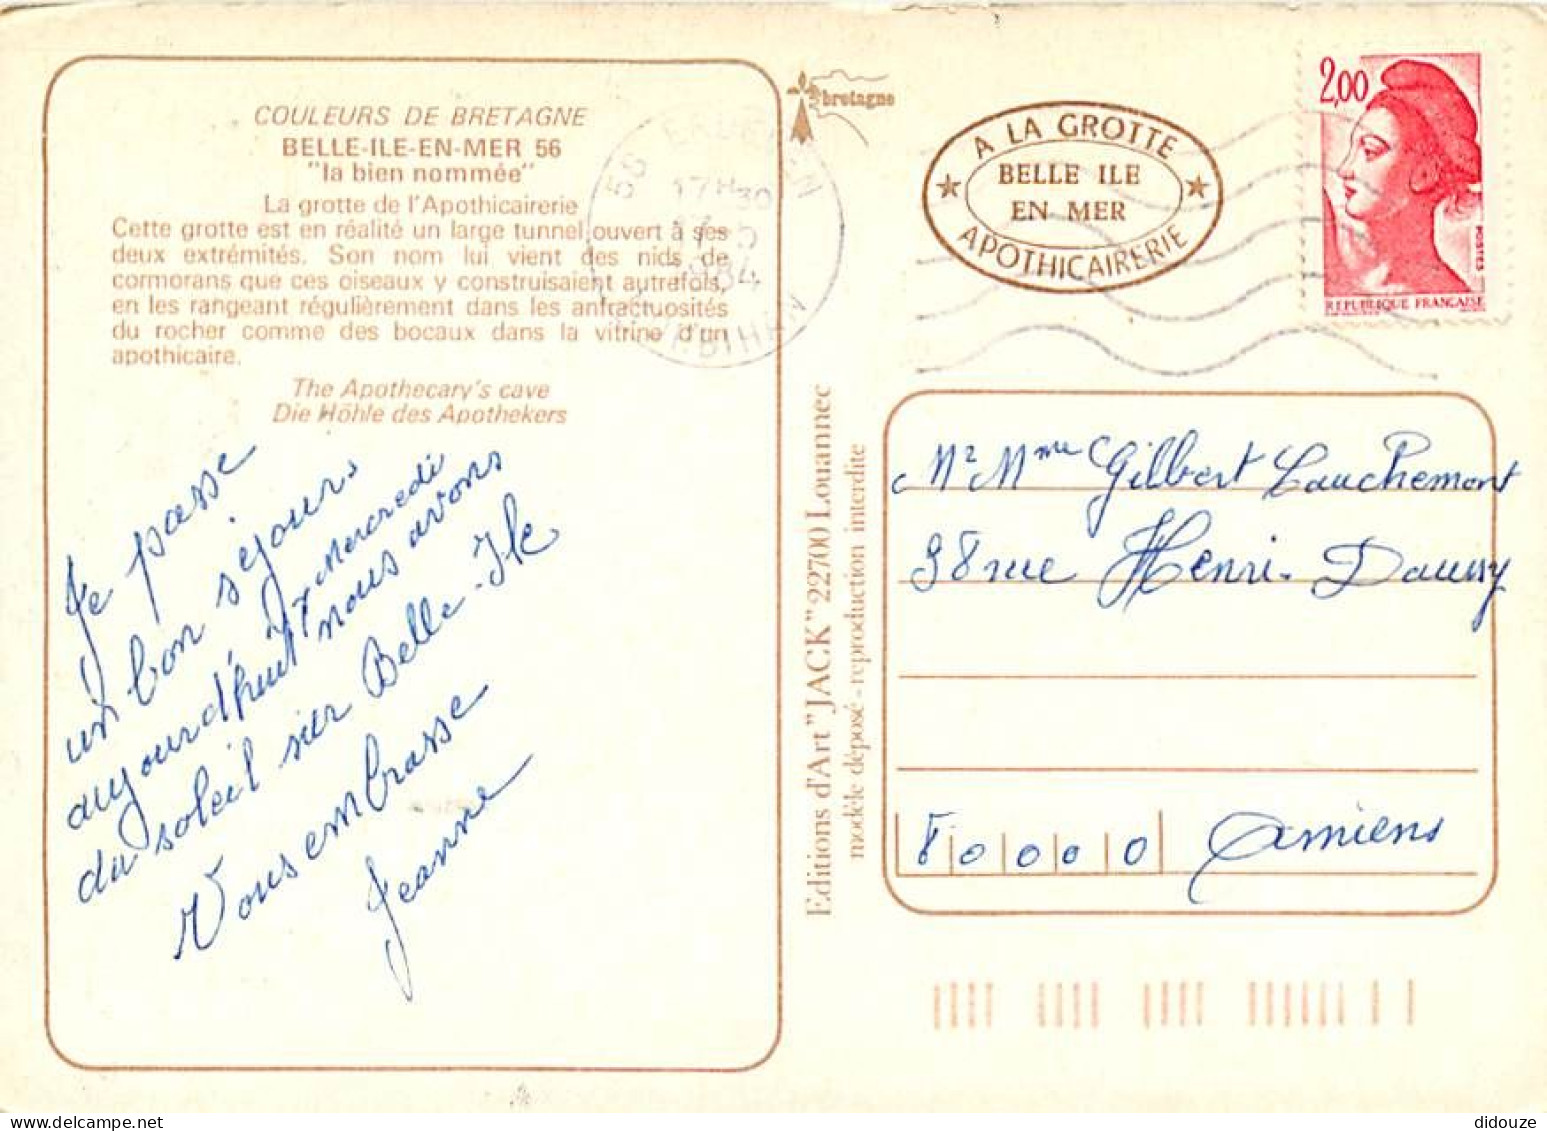 COULEURS DE BRETAGNE
BELLE-ILE-EN-MER 56
"la bien nommée"
La grotte de l'Apothicairerie
Cette grotte est en réalité un large tunnel ouvert à ses
deux extrémités. Son nom lui vient des nids de
cormorans que ces oiseaux y construisaient autrefois,
en les rangeant régulièrement dans les anfractuosités
du rocher comme des bocaux dans la vitrine d'un
apothicaire.
The Apothecary's cave
Die Höhle des Apothekers
Je passe
un bon séjour.
aujourd'hui Mercredi
nous avons
du soleil sur Belle-Ile
Vous embrasse
Jeanne
56
17H30
bretagne
A LA GROTTE
BELLE ILE
EN MER
APOTHICAIRERIE
2,00
POSTES
REPUBLIQUE FRANÇAISE
Editions d'Art "JACK" 22700 Louannec
modèle déposé - reproduction interdite
Mr Mme Gilbert Lauchemont
98 rue Henri-Daussy
80000 Amiens
didouze